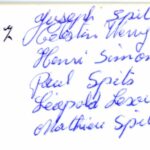 7 Joseph Spit
Célestin Henry
Henri Simon
Paul Spits
Léopold
Mathieu Spit